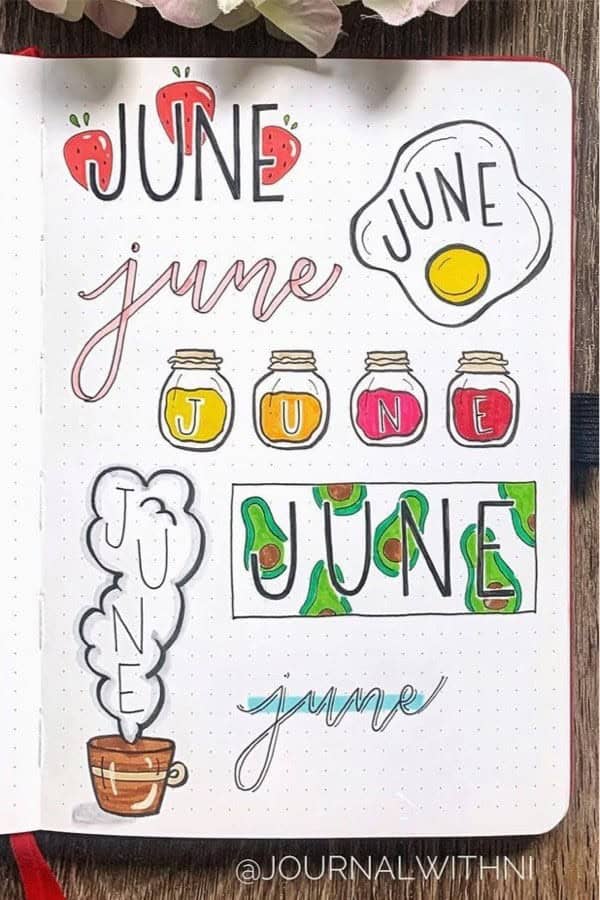 JUNE
JUNE
june
J U N E
JUNE
JUNE
june
@JOURNALWITHNI